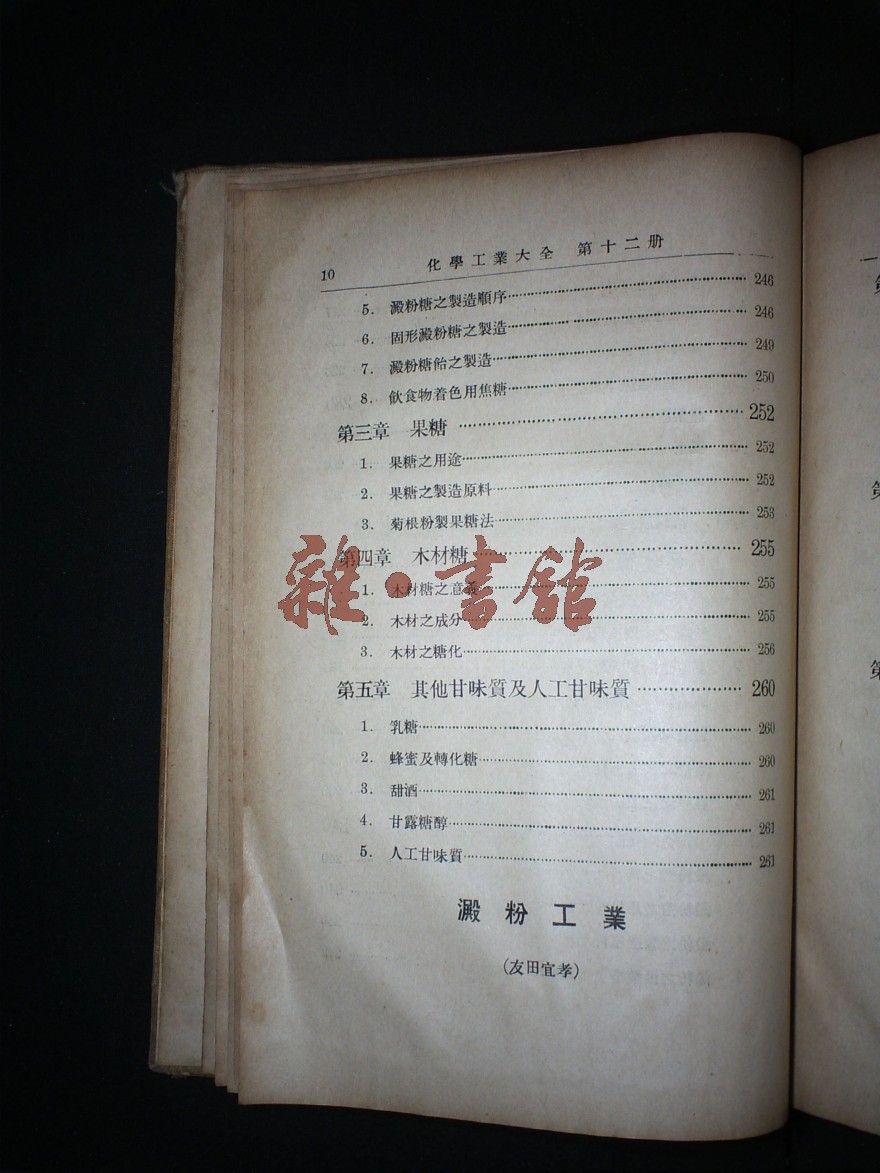 10 化學工業大全 第十二册
5. 澱粉糖之製造順序 246
6. 固形澱粉糖之製造 246
7. 澱粉糖飴之製造 249
8. 飲食物着色用焦糖 250
第三章 果糖 252
1. 果糖之用途 252
2. 果糖之製造原料 252
3. 菊根粉製果糖法 253
第四章 木材糖 255
1. 木材糖之意義 255
2. 木材之成分 255
3. 木材之糖化 256
第五章 其他甘味質及人工甘味質 260
1. 乳糖 260
2. 蜂蜜及轉化糖 260
3. 甜酒 261
4. 甘露糖醇 261
5. 人工甘味質 261
澱粉工業
(友田宜孝)
雜·書館